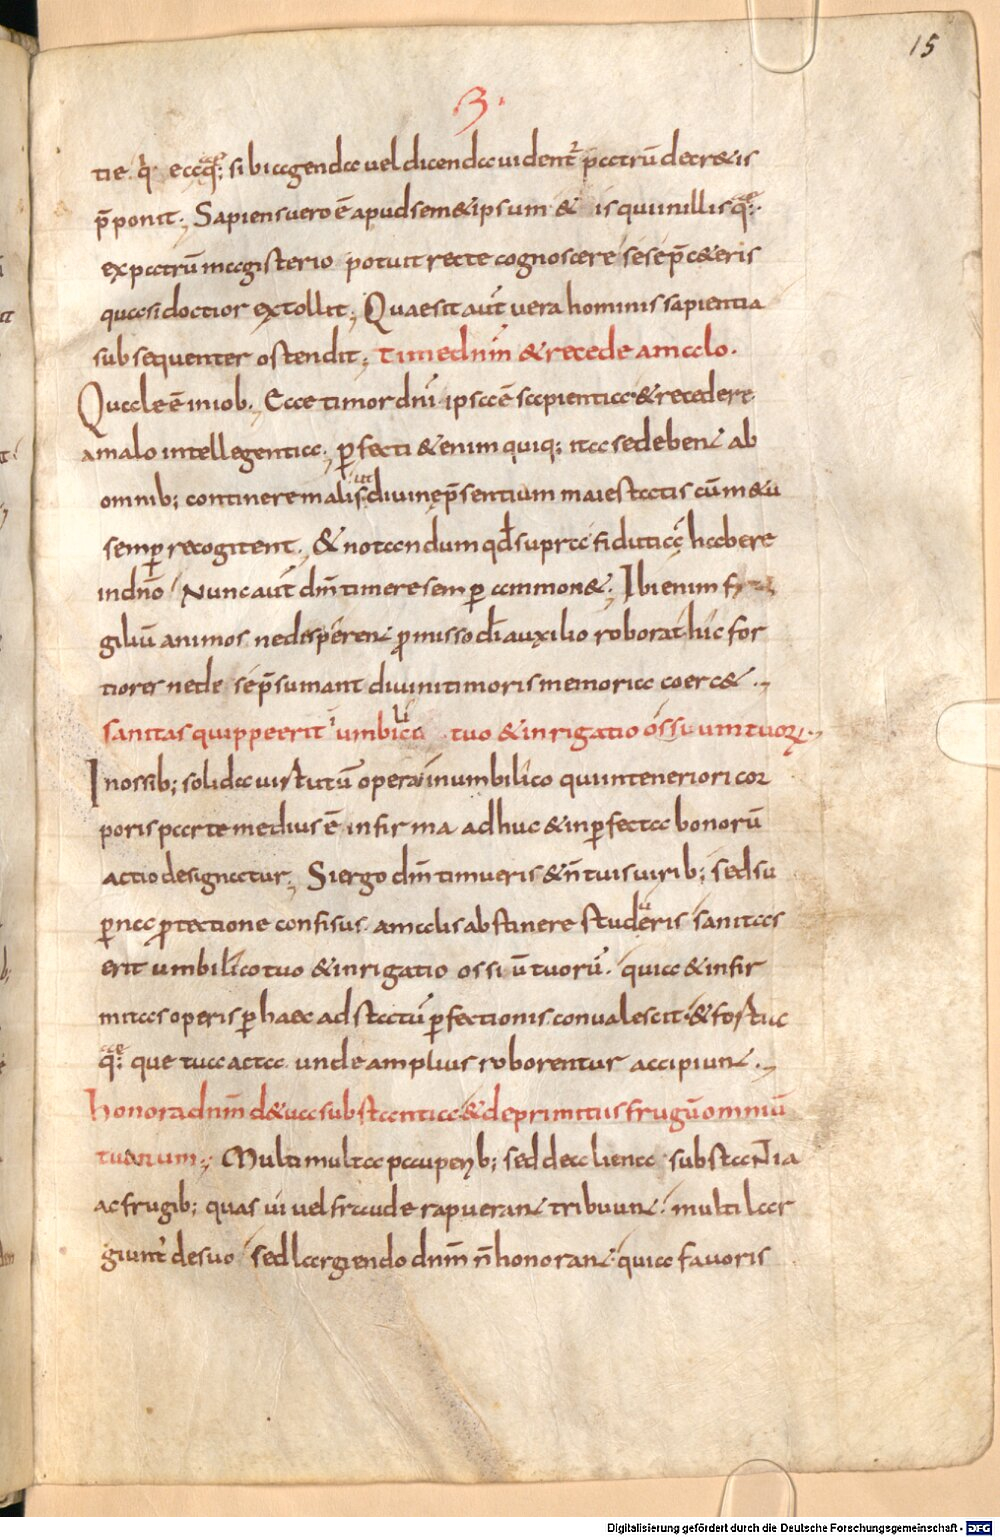 15
3.
tie. q̇ eaq̨; sibi agenda vel dicenda videnť patrū decr&is
p̄ponit; Sapiens vero ē apud sem&ipsum & is qui in illis q̨;
ex patrū magisterio potuit recte cognoscere sese p̄c&eris
quasi doctior extollit; Quae sit aut̄ vera hominis sapientia
subsequenter ostendit; time dnm̄ & recede a malo.
Quale ē in iob; Ecce timor dnī ipsa ē sapientia & recedere
a malo intellegentia; ꝑfecti &enim quiq; ita se deben̄t ab
omnib; continere malis ut divinę p̄sentium maiestatis cūm &u
semꝑ recogitent; & notandum qđ supra fiduciā habere
in dn̄o / Nunc aut̄ dm̄ timere semꝑ ammon&; Ibi enim fra
giliū animos ne desperent ꝓmisso dī auxilio roborat hic for
tiores ne de se p̄sumant divini timoris memoria coerc&;
sanitas quippe erit umbilico tuo & inrigatio ossuum tuoꝝ;
In ossib; solida virtutū opera in umbilico qui in teneriori cor
poris parte medius ē infirma adhuc & inꝑfecta bonorū
actio designatur; Si ergo dm̄ timueris & n̄ tuis virib; sed su
ꝑna ꝓtectione confisus a malis abstinere studueris sanitas
erit umbilico tuo & inrigatio ossiū tuorū. quia & infir
mitas operis ꝑ haec ad statū ꝑfectionis convalescit & fostua
q̨; que tua acta unde amplius roborentur accipiunt;
honora dnm̄ de tua substantia & de primitiis frugū omniū
tuarum; Multi multa pauperib; sed de aliena substantia
ac frugib; quas vi vel fraude rapuerant tribuunt. multi lar
giunt̉ de suo sed largiendo dnm̄ n̄ honorant. quia favoris
Digitalisierung gefördert durch die Deutsche Forschungsgemeinschaft - DFG